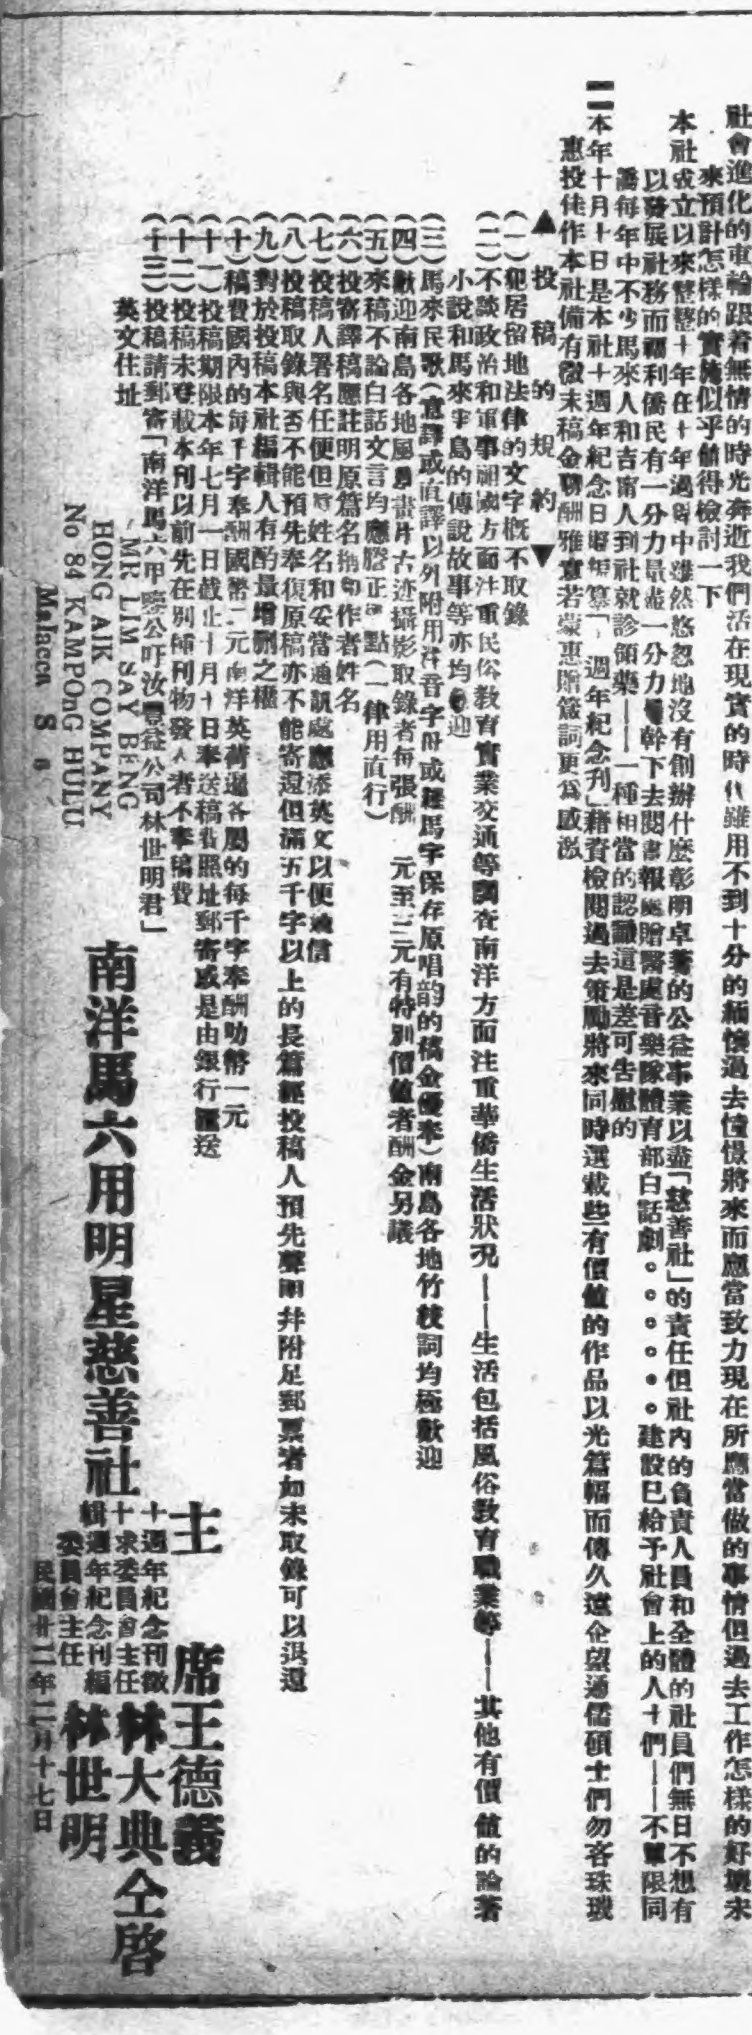 社會進化的車輪跟着無情的時光奔逝我們活在現實的時代雖用不到十分的緬懷過去憧憬將來而應當致力現在所應當做的事情但過去工作怎樣的好壞未
來預計怎樣的實施似乎值得檢討一下
本社成立以來整整十年在十年過程中雖然悠忽地沒有創辦什麼彰明卓著的公益事業以盡「慈善社」的責任但社內的負責人員和全體的社員們無日不想有
以發展社務而福利僑民有一分力量盡一分力幹下去閱書報處贈醫處音樂隊體育部白話劇。。。。。。建設已給予社會上的人士們——不單限同
僑每年中不少馬來人和吉甯人到社就診領藥——一種相當的認識這是差可告慰的
本年十月十日是本社十週年紀念日將編纂「週年紀念刊」藉資檢閱過去策勵將來同時選載些有價值的作品以光篇幅而傳久遠企望通儒碩士們勿吝珠璣
惠投佳作本社備有微末稿金聊酬雅意若蒙惠贈箴詞更為感激
▲投稿的規約▼
(一)犯居留地法律的文字概不取錄
(二)不談政治和軍事祖國方面注重民俗教育實業交通等調查南洋方面注重華僑生活狀况——生活包括風俗教育職業等——其他有價值的論著
小說和馬來半島的傳說故事等亦均歡迎
(三)馬來民歌(意譯或直譯以外附用拼音字母或羅馬字保存原唱韵的稿金優奉)南島各地竹枝詞均極歡迎
(四)歡迎南島各地風景畫片古迹攝影取錄者每張酬 元至三元有特別價值者酬金另議
(五)來稿不論白話文言均應謄正 點(一律用直行)
(六)投寄譯稿應註明原篇名稱和作者姓名
(七)投稿人署名任便但 姓名和妥當通訊處應添英文以便通信
(八)投稿取錄與否不能預先奉復原稿亦不能寄還但滿五千字以上的長篇經投稿人預先聲明并附足郵票者如未取錄可以退還
(九)對於投稿本社編輯人有酌量增刪之權
(十)稿費國內的每千字奉酬國幣二元南洋英荷暹各屬的每千字奉酬叻幣一元
(十一)投稿期限本年七月一日截止十月十日奉送稿費照址郵寄或是由銀行匯送
(十二)投稿未登載本刊以前先在別種刊物發 者不奉稿費
(十三)投稿請郵寄「南洋馬六甲 公吁汝豐益公司林世明君」
英文住址
MR LIM SAY BENG
HONG AIK COMPANY
No 84 KAMPOnG HULU
Malacca S S
南洋馬六甲明星慈善社
主席王德義
十週年紀念刊徵求委員會主任林大典
十週年紀念刊編輯委員會主任林世明
仝啓
民國廿二年二月十七日